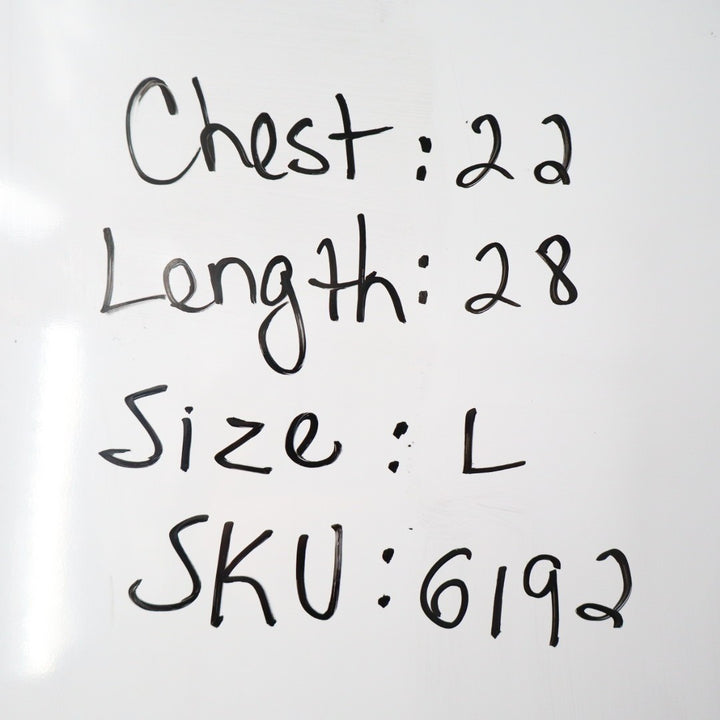 Chest: 22
Length: 28
Size: L
SKU: 6192